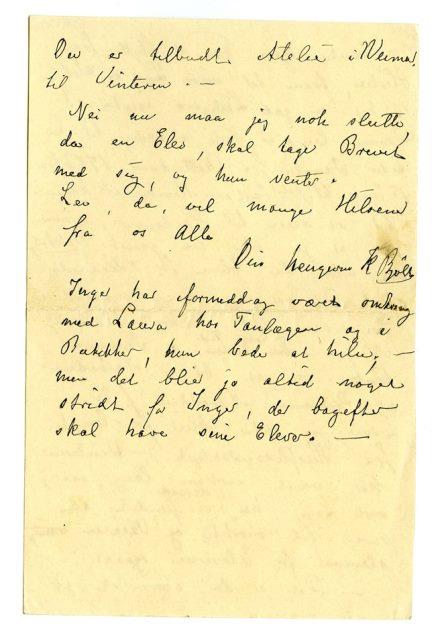 Der er tilbudt Atelier i Weimar
til Vinteren. —
Nei nu maa jeg nok slutte,
da en Elev, skal tage Brevet
med sig, og hun venter.
Lev, da, vel mange Hilsener
fra os Alle
Din hengivne K
Inger har formeddag været omkring
med Laura hos Tanlægen, og i
Butikker, hun bede at hilse, —
men det blir jo altid noget
stridt for Inger, der bagefter
skal have sine Elever. —